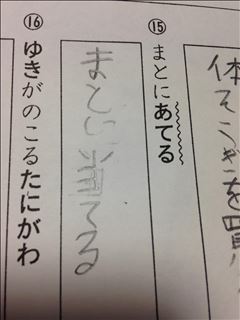 体そうぎを買
⑮まとにあてる
まとに当てる
⑯ゆきがのこるたにがわ